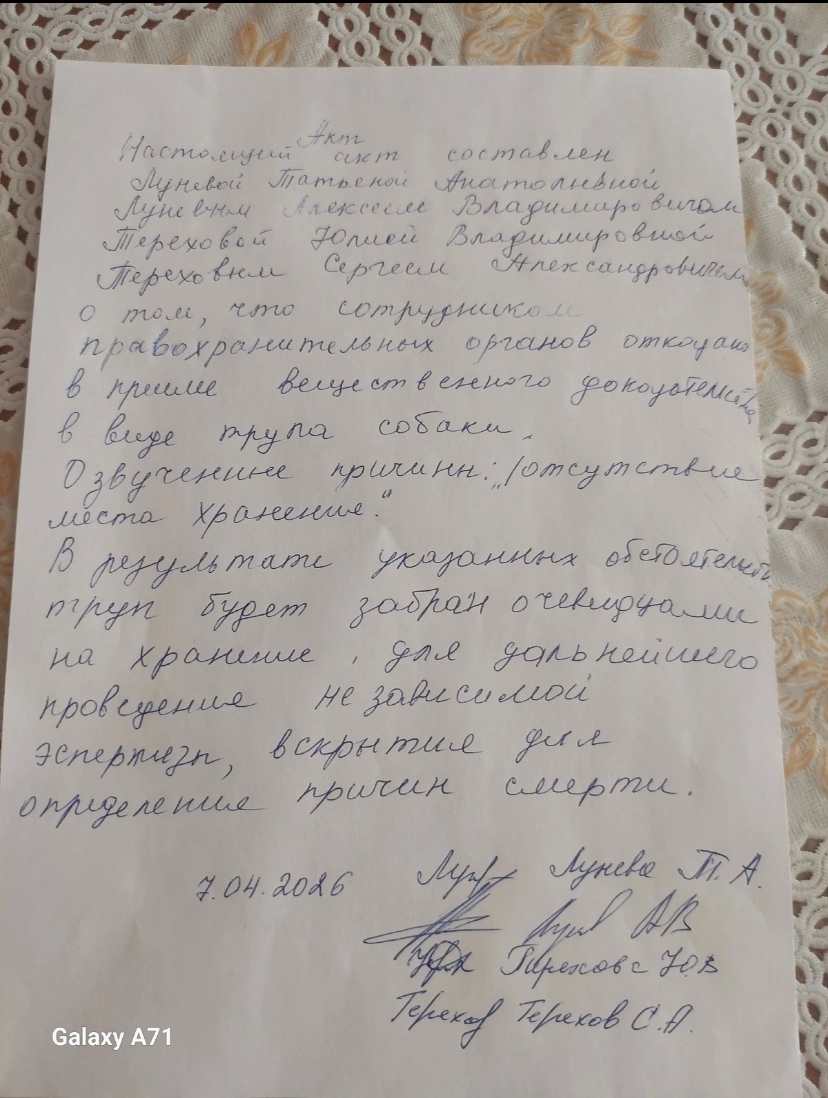 Акт
Настоящий акт составлен
Луневой Татьеной Анатольевной
Луневым Алексеем Владимировичом
Тереховой Юлией Владимировной
Тереховым Сергеем Александровичем
о том, что сотрудником
правохранительных органов отказано
в приеме вещественного доказательства
в виде трупа собаки.
Озвученные причины: „отсутствие
места хранения."
В результате указанных обстоятельств
труп будет забран очевидцами
на хранение, для дальнейшего
проведения независимой
эспертизы, вскрытия для
определения причин смерти.
7.04.2026 Лунева Т. А.
АВ
Терехова Ю.В
Терехов С. А.
Galaxy A71